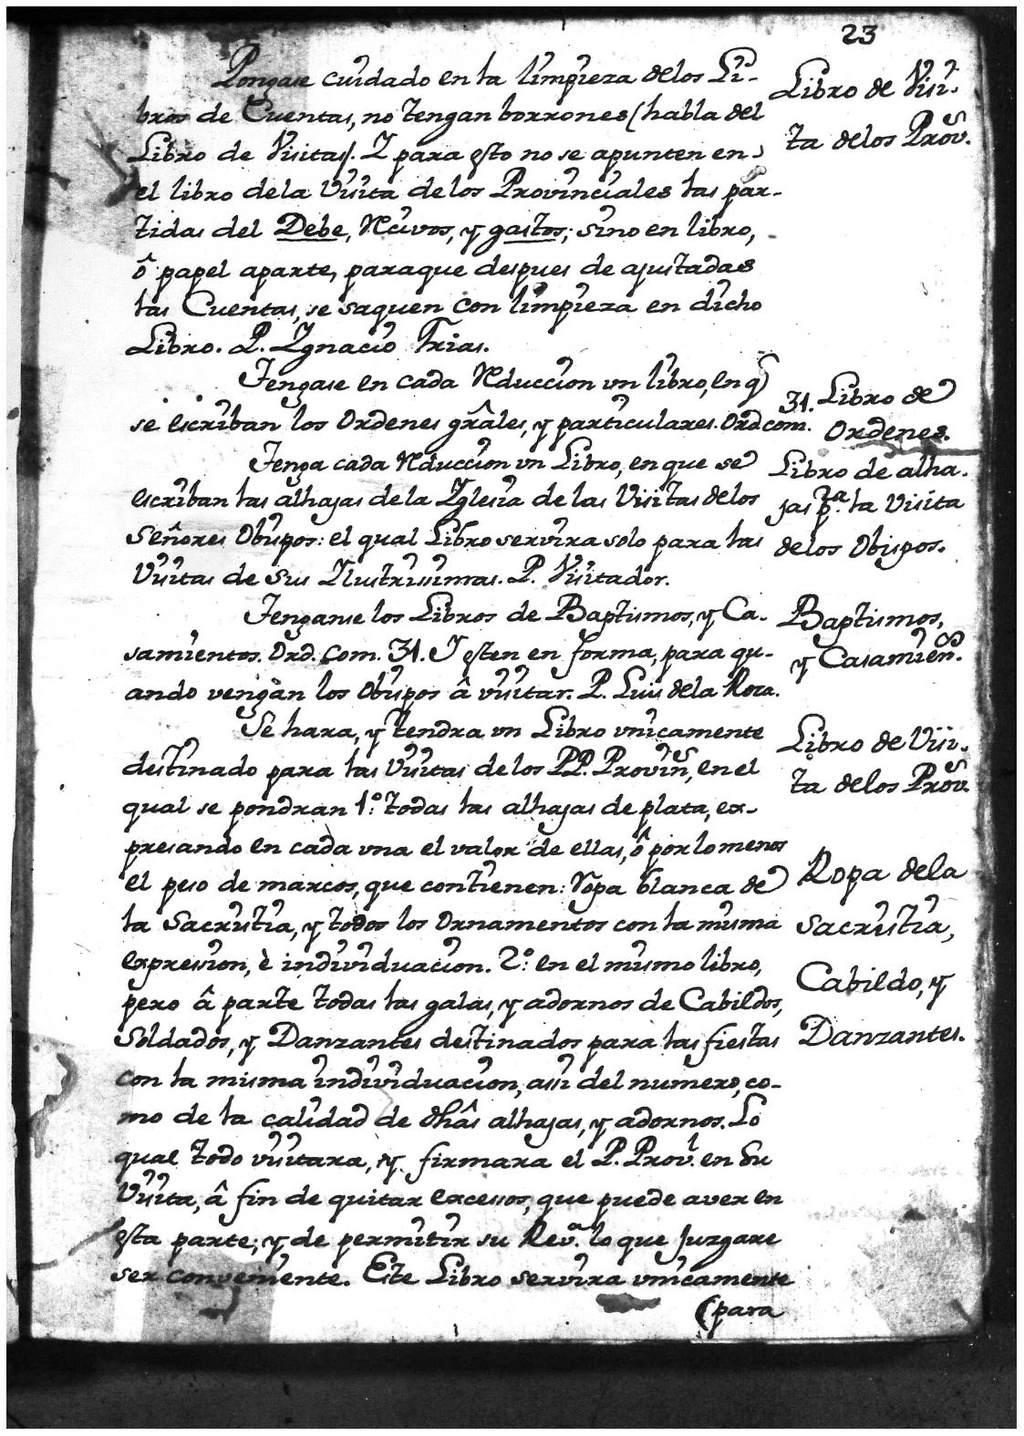 23
Pongase cuidado en la limpieza delos Li-
bros de Cuentas, no tengan borrones (habla del
Libro de Visitas). I para esto no se apunten en
el libro dela Visita delos Provinciales las par-
tidas del Debe, Recivos, y gastos; sino en libro,
ô papel aparte, paraque despues de ajustadas
las Cuentas, se saquen con limpieza en dicho
Libro. P. Ignacio Frias.
Libro de Visi-
ta delos Prov.s
Tengase en cada Reduccion vn libro, en q
se escriban los Ordenes grâles, y particulares. Ord com. 31.
Libro de
Ordenes.
Tenga cada Reduccion vn Libro, en que se
escriban las alhajas dela Iglesia de las Visitas delos
Señores Obispos: el qual Libro servira solo para las
Visitas de Sus Ilustrissimas. P. Visitador.
Libro de alha-
jas p.a la Visita
delos Obispos.
Tenganse los Libros de Baptismos, y Ca-
samientos. Ord. Com. 31. I esten en forma, para qu-
ando vengàn los Obispos â visitar. P. Luis dela Roca.
Baptismos,
y Casamien.os
Se hara, y tendra vn Libro vnicamente
destinado para las Visitas delos PP. Provin.s, en el
qual se pondran 1.º todas las alhajas de plata, ex-
presando en cada vna el valor de ellas, ô por lo menos
el peso de marcos, que contienen: Ropa blanca de
la Sacristia, y todos los Ornamentos con la misma
expression, è individuacion. 2.º en el mismo libro,
pero â parte todas las galas, y adornos de Cabildos,
Soldados, y Danzantes destinados para las fiestas
con la misma individuacion, assi del numero, co-
mo de la calidad de dhâs alhajas, y adornos. Lo
qual todo visitara, y firmara el P. Prov.l en su
Visita, â fin de quitar excessos, que puede aver en
esta parte; y de permitir su Rev.a lo que juzgare
ser conveniente. Este Libro servira vnicamente
(para
Libro de Visi-
ta delos Prov.s
Ropa dela
Sacristia,
Cabildo, y
Danzantes.